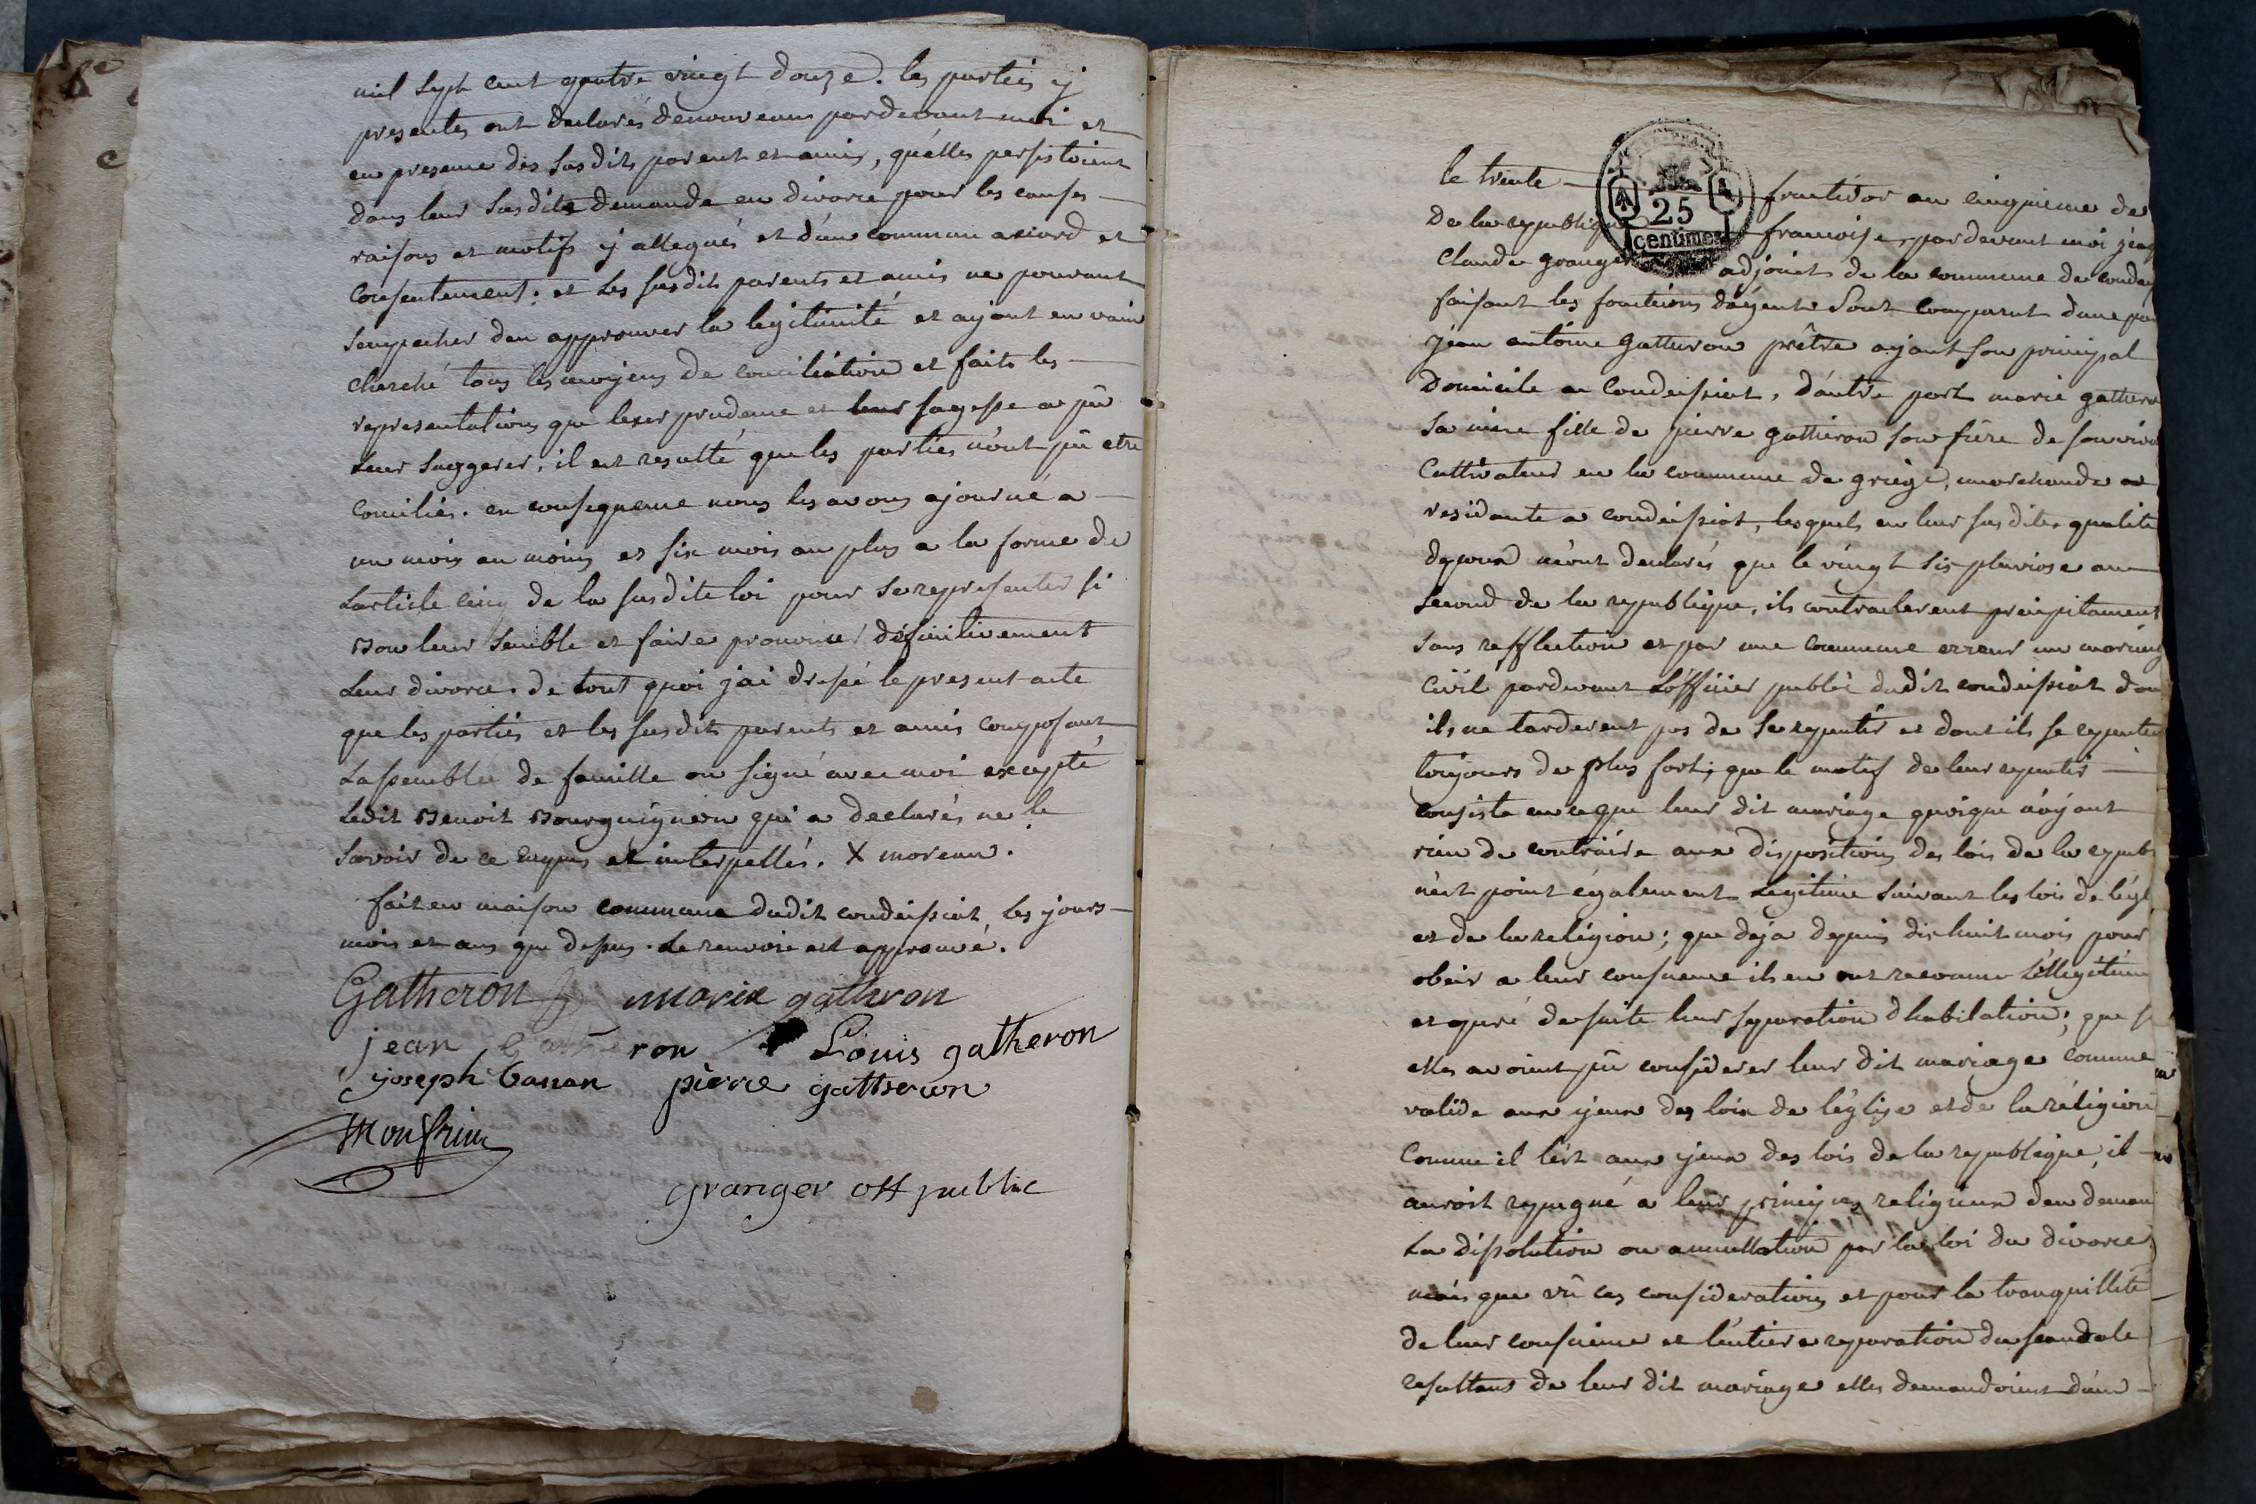 mil sept cent quatre vingt douze. les parties y
presentes ont declarés denouveaux pardevant moi et
en presence des susdits parent et amis, quélles persistoient
dans leur susdite demande en divorce pour les causes
raisons et motifs y allegués et d'un commun accord et
consentement; et les susdits parents et amis ne pouvant
sempecher den approuver la legitimité et ayant en vain
cherché tous les moyens de conciliation et faits les
representations que leur prudence et leur sagesse a pû
leur suggerer, il est resulté que les parties n'ont pû etre
conciliés. en consequence nous les avons ajourné a
un mois au moins et six mois au plus a la forme de
l'article cinq de la susdite loi pour se representer si
bon leur semble et faire prononcer définitivement
leur divorce. de tout quoi j'ai dressé le present acte
que les parties et les susdits parents et amis composant
lassemblée de famille on signé avec moi excepté
ledit benoit bourguignon qui a declarés ne le
savoir de ce enquis et interpellés. X moreau.
fait en maison commune dudit condeissiat, les jours
mois et ans que dessus. le renvoie est approuvé.
Gatheron marie gathron
jean gatheron Louis gatheron
joseph pierre gattheron
Monfrin
granger off public
25
centimes
le trente fructidor an cinquieme de
De la republique francoise, pardevant moi
Claude granger adjoint de la commune de
faisant les fonctions dagent sont comparut dune
jean antoine gatteron prêtre ayant son principal
Domicile a condeissiat, d'autre part marie
sa niece fille de pierre gattheron son frere de son
Cultivateur en la commune de griege, marchande
residante a condeissiat, lesquels en leur susdite qualité
m'ont declarés que le vingt six pluviose an
second de la republique, ils contracterent precipitament
sans refflection et par une commune erreur un
civil pardevant l'officier public dudit condeissiat
ils ne tarderent pas de se repentir et dont ils se
toujours de plus fort; que le motif de leur repentir
consiste en ce que leur dit mariage quoique n'ayant
rien de contraire aux dispositions des lois de la
n'est point également legitime suivant les lois de
et de la religion; que deja depuis dix huit mois pour
obeir a leur conscience ils en ont reconnu
et operé de suite leur separation d'habitation; que
elles avoient pû considerer leur dit mariage comme
valide aux yeux des lois de léglise et de la réligion
Comme il l'est aux yeux des lois de la republique, il
auroit repugné a leur principes religieux den
La dissolution ou annullation par la loi du divorce
mais que vû ces considerations et pour la tranquillité
de leur conscience et l'entiere reparation du scandale
resultant de leur dit mariage elles demandoient d'un